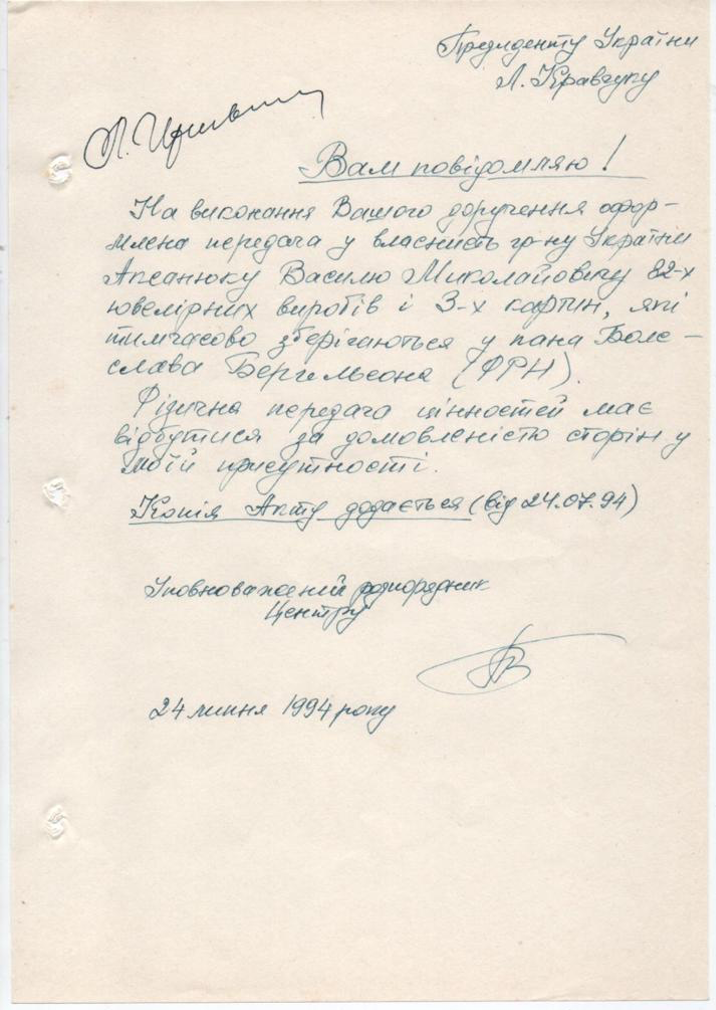 Президенту України
Л. Кравчуку
Вам повідомляю!
На виконання Вашого доручення офор-
млена передача у власність гр-ну України
Апсанюку Василю Миколайовичу 82-х
ювелірних виробів і 3-х картин, які
тимчасово зберігаються у пана Болє-
слава Бергельсона (ФРН).
Фізична передача цінностей має
відбутися за домовленістю сторін у
моїй присутності.
Копія Акту додається (від 24.07.94)
Уповноважений розпорядник
Центру
24 липня 1994 року